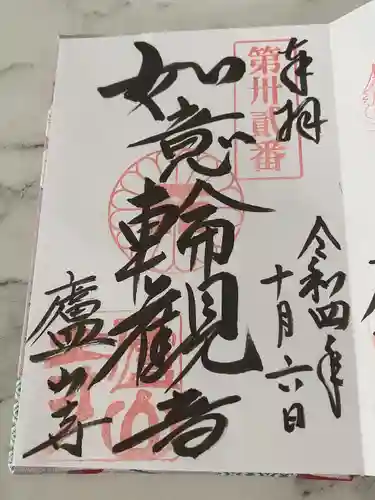 奉拝
第卅貳番
令和四年
十月六日
如意輪観音
廬山寺